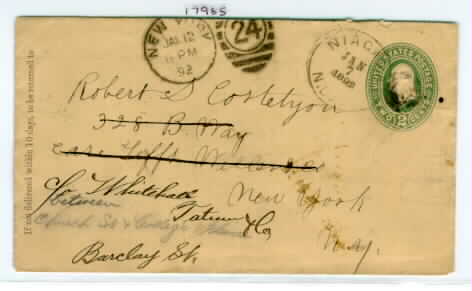 17985
NEW YORK
JAN 12
PM
92
24
NIAG
JAN
7
1892
N.Y.
UNITED STATES POSTAGE
TWO 2 CENTS
If not delivered within 10 days, to be returned to
Robert S Costetyon
328 B. Way
Care
New York
c/o Whitehall
Tatum & Co,
between
Church St & College
N.Y.
Barclay St.